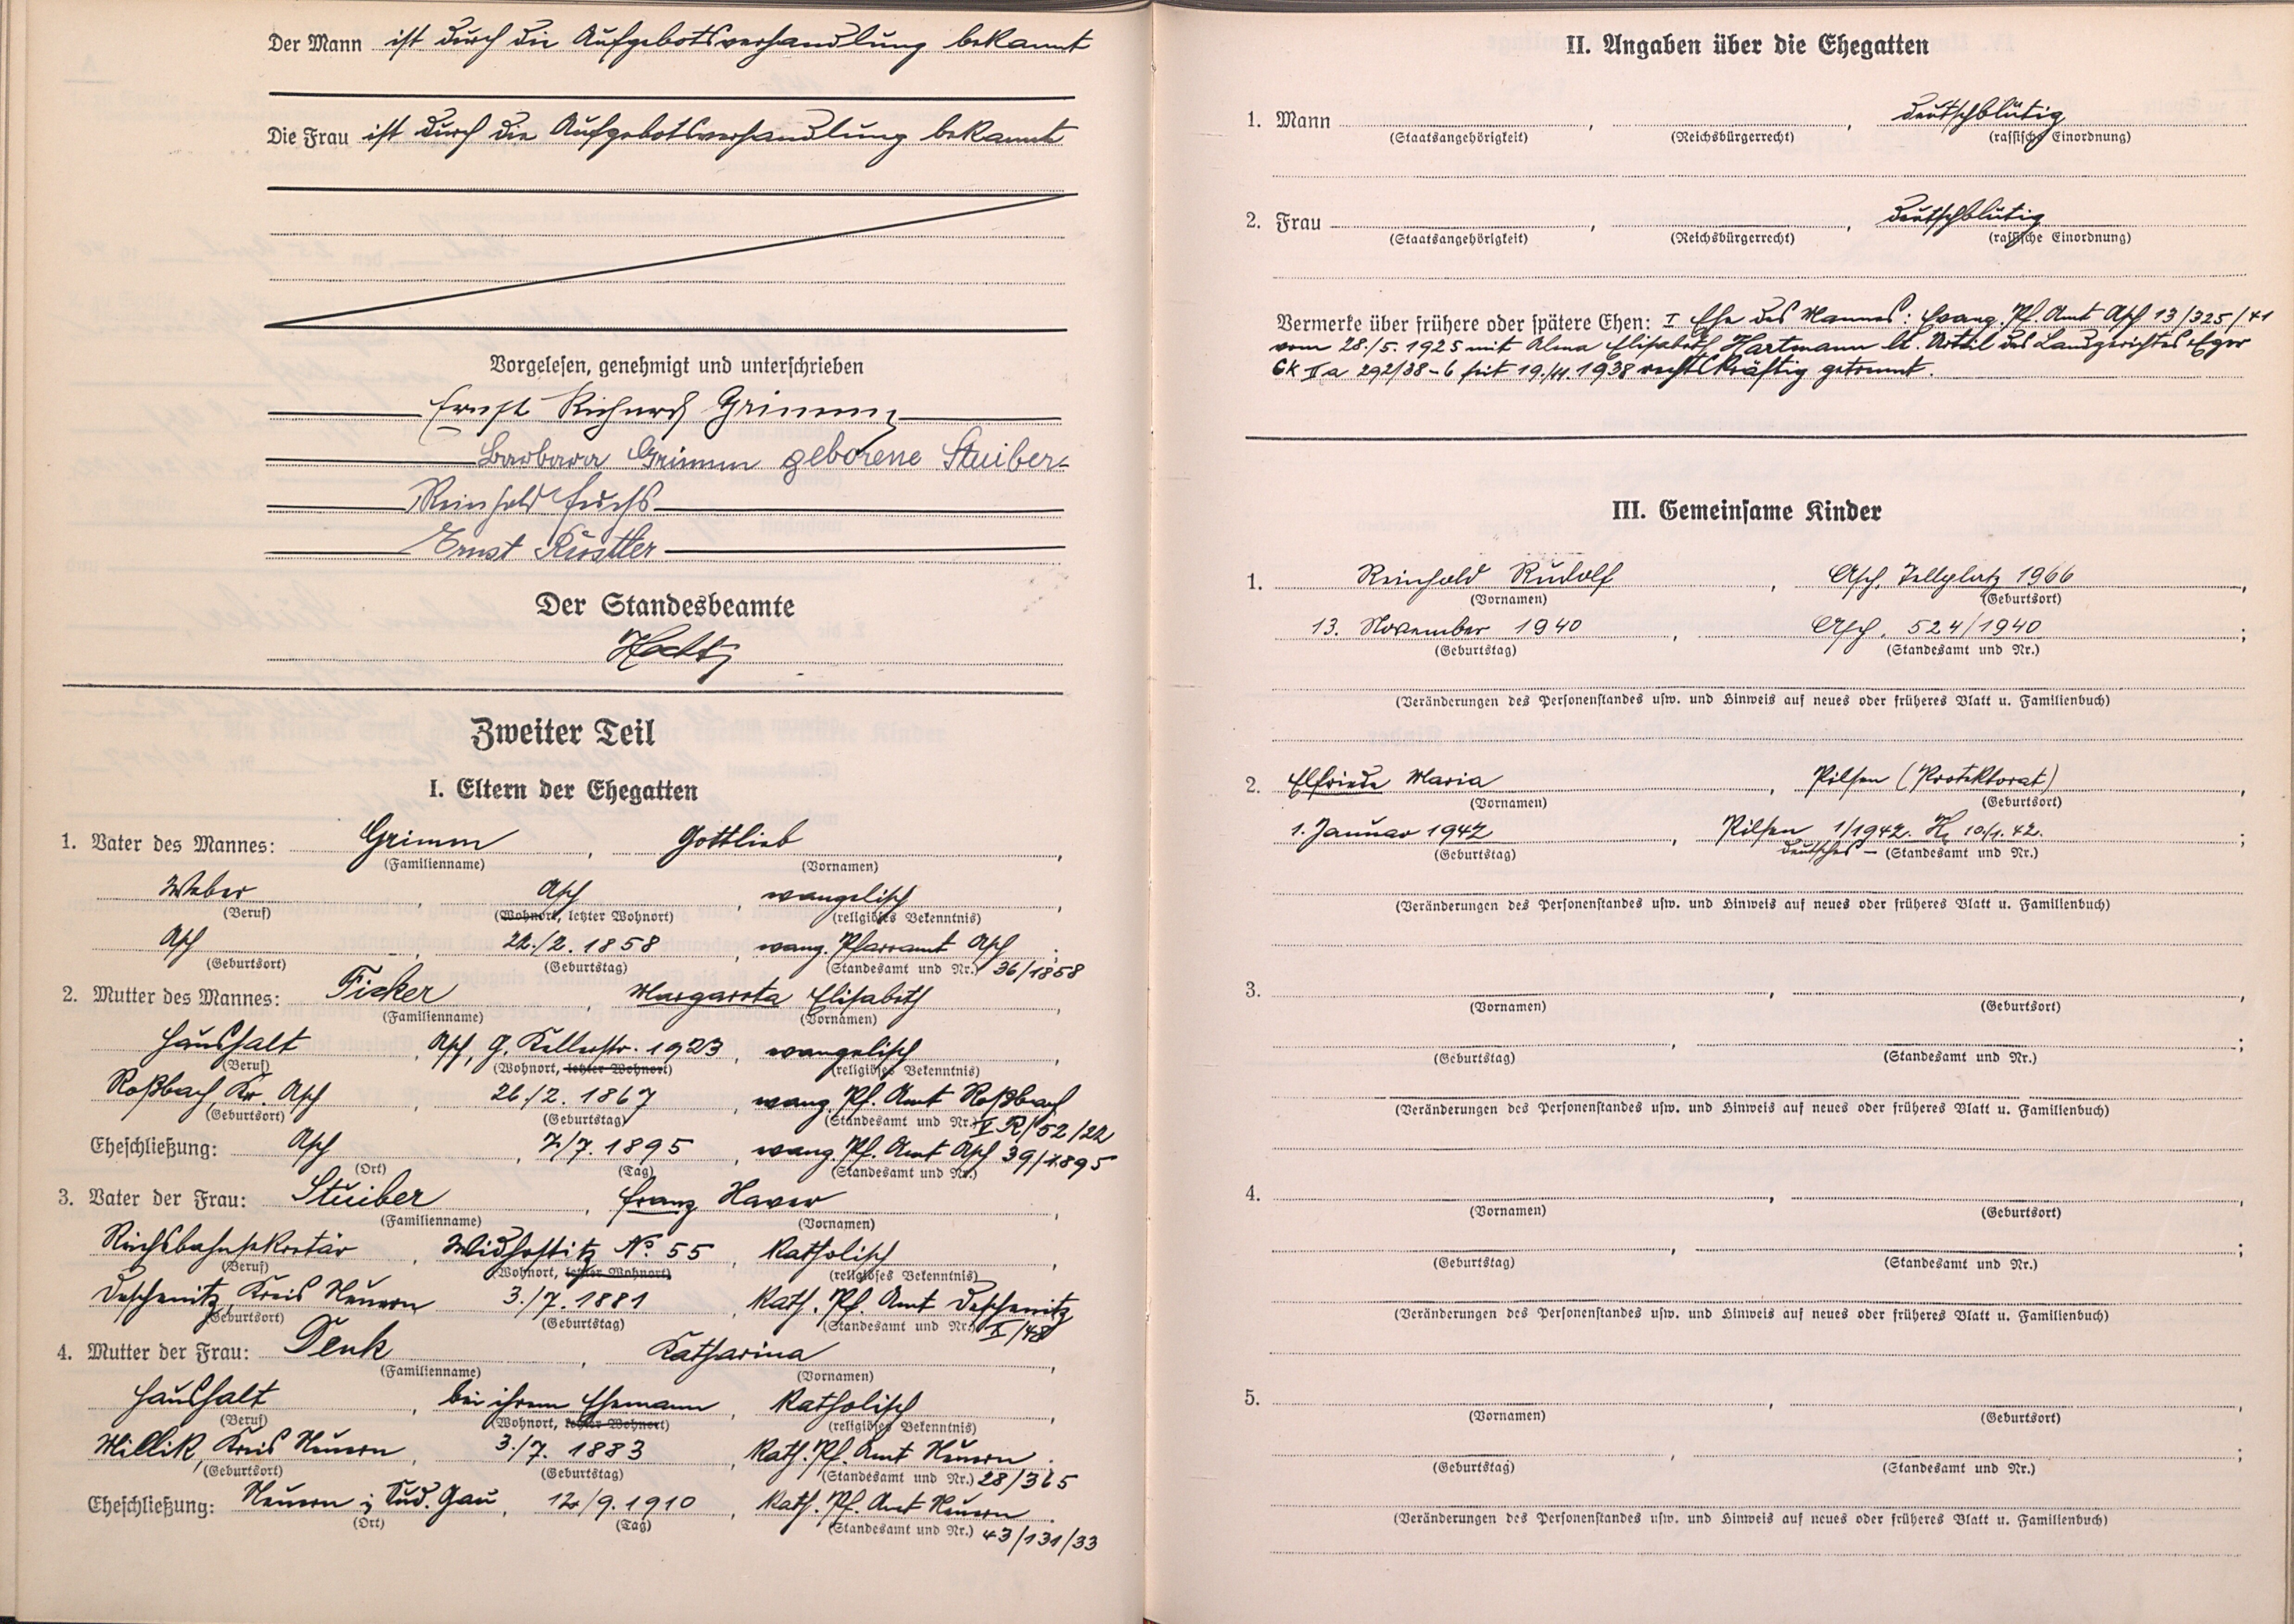 Der Mann ist durch die Aufgebotsverhandlung bekannt
Die Frau ist durch die Aufgebotsverhandlung bekannt
Vorgelesen, genehmigt und unterschrieben
Ernst Richard Grimm
Barbara Grimm geborene Stuiber
Reinhold Fuchs
Ernst Künstler
Der Standesbeamte
Zweiter Teil
I. Eltern der Ehegatten
1. Vater des Mannes: Grimm, Gottlieb,
(Familienname) (Vornamen)
Weber, Asch, evangelisch,
(Beruf) (Wohnort, letzter Wohnort) (religiöses Bekenntnis)
Asch, 22./2. 1858, evang. Pfarramt Asch;
(Geburtsort) (Geburtstag) (Standesamt und Nr.) 36/1858
2. Mutter des Mannes: Ficker, Margareta Elisabeth,
(Familienname) (Vornamen)
Haushalt, Asch, G. Kellerstr. 1923, evangelisch,
(Beruf) (Wohnort, letzter Wohnort) (religiöses Bekenntnis)
Roßbach, Kr. Asch, 26./2. 1867, evang. Pf. Amt Roßbach
(Geburtsort) (Geburtstag) (Standesamt und Nr.) V R/52/22
Eheschließung: Asch, 7./7. 1895, evang. Pf. Amt Asch 39/1895
(Ort) (Tag) (Standesamt und Nr.)
3. Vater der Frau: Stuiber, Franz Xaver,
(Familienname) (Vornamen)
Reichsbahnsekretär, Widhostitz No. 55, katholisch,
(Beruf) (Wohnort, letzter Wohnort) (religiöses Bekenntnis)
Deschenitz, Kreis Neuern, 3./7. 1881, kath. Pf. Amt Deschenitz
(Geburtsort) (Geburtstag) (Standesamt und Nr.) X/48
4. Mutter der Frau: Denk, Katharina,
(Familienname) (Vornamen)
Haushalt, bei ihrem Ehemann, katholisch,
(Beruf) (Wohnort, letzter Wohnort) (religiöses Bekenntnis)
Millik, Kreis Neuern, 3./7. 1883, kath. Pf. Amt Neuern.
(Geburtsort) (Geburtstag) (Standesamt und Nr.) 28/365
Eheschließung: Neuern i. Sud. Gau, 12./9. 1910, kath. Pf. Amt Neuern.
(Ort) (Tag) (Standesamt und Nr.) 43/131/33
II. Angaben über die Ehegatten
1. Mann, , deutschblütig
(Staatsangehörigkeit) (Reichsbürgerrecht) (rassische Einordnung)
2. Frau, , deutschblütig
(Staatsangehörigkeit) (Reichsbürgerrecht) (rassische Einordnung)
Vermerke über frühere oder spätere Ehen: I Ehe des Mannes: Evang. Pf. Amt Asch 13/325/41
vom 28./5. 1925 mit Alma Elisabeth Hartmann lt. Urteil des Landgerichtes Eger
Ck II a 292/38-6 seit 19./11. 1938 rechtskräftig getrennt.
III. Gemeinsame Kinder
1. Reinhold Rudolf, Asch, Jellplatz 1966,
(Vornamen) (Geburtsort)
13. November 1940, Asch. 524/1940;
(Geburtstag) (Standesamt und Nr.)
(Veränderungen des Personenstandes usw. und Hinweis auf neues oder früheres Blatt u. Familienbuch)
2. Elfriede Maria, Pilsen (Protektorat),
(Vornamen) (Geburtsort)
1. Januar 1942, Pilsen 1/1942. 10./1. 42.;
(Geburtstag) deutsches - (Standesamt und Nr.)
(Veränderungen des Personenstandes usw. und Hinweis auf neues oder früheres Blatt u. Familienbuch)
3. , ,
(Vornamen) (Geburtsort)
, ;
(Geburtstag) (Standesamt und Nr.)
(Veränderungen des Personenstandes usw. und Hinweis auf neues oder früheres Blatt u. Familienbuch)
4. , ,
(Vornamen) (Geburtsort)
, ;
(Geburtstag) (Standesamt und Nr.)
(Veränderungen des Personenstandes usw. und Hinweis auf neues oder früheres Blatt u. Familienbuch)
5. , ,
(Vornamen) (Geburtsort)
, ;
(Geburtstag) (Standesamt und Nr.)
(Veränderungen des Personenstandes usw. und Hinweis auf neues oder früheres Blatt u. Familienbuch)